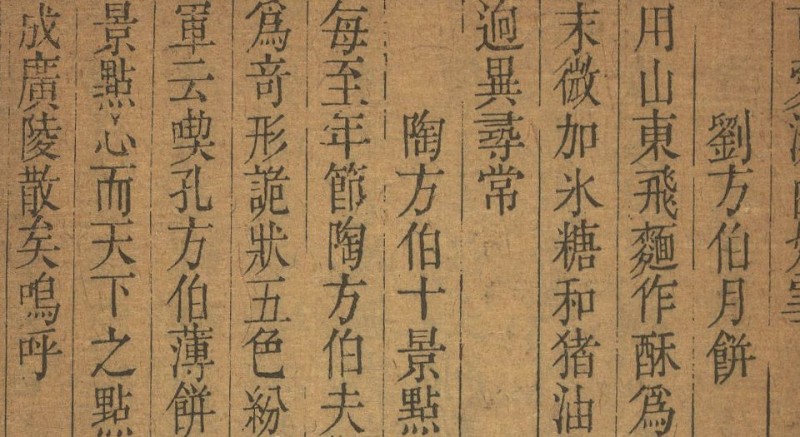 劉方伯月餅
用山東飛麵作酥爲
末微加氷糖和猪油
逈異尋常
陶方伯十景點
每至年節陶方伯夫
爲竒形詭狀五色紛
軍云喫孔方伯薄餅
景點心而天下之點
成廣陵散矣嗚呼